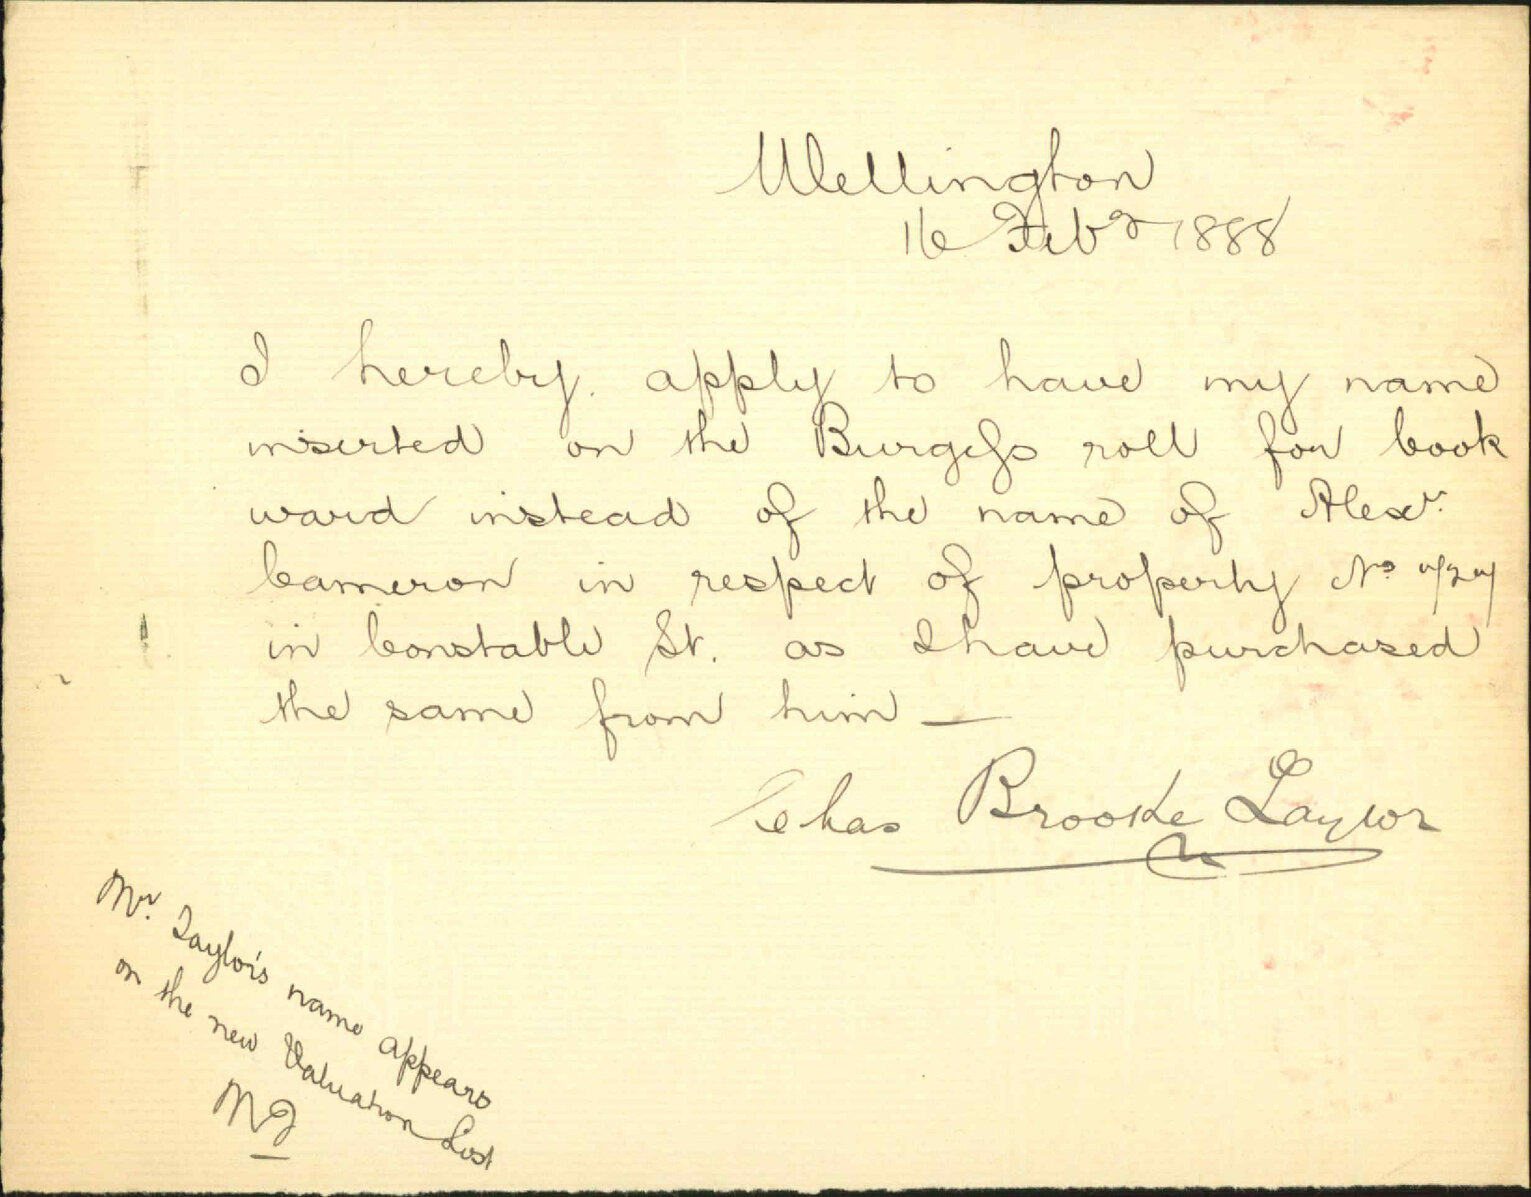 Wellington
16 Feby 1888
I hereby apply to have my name
inserted on the Burgess roll for Cook
ward instead of the name of Alexr.
Cameron in respect of property No
in Constable St. as I have purchased
the same from him —
Chas Brooke Taylor
Mr. Taylor's name appears
on the new Valuation List